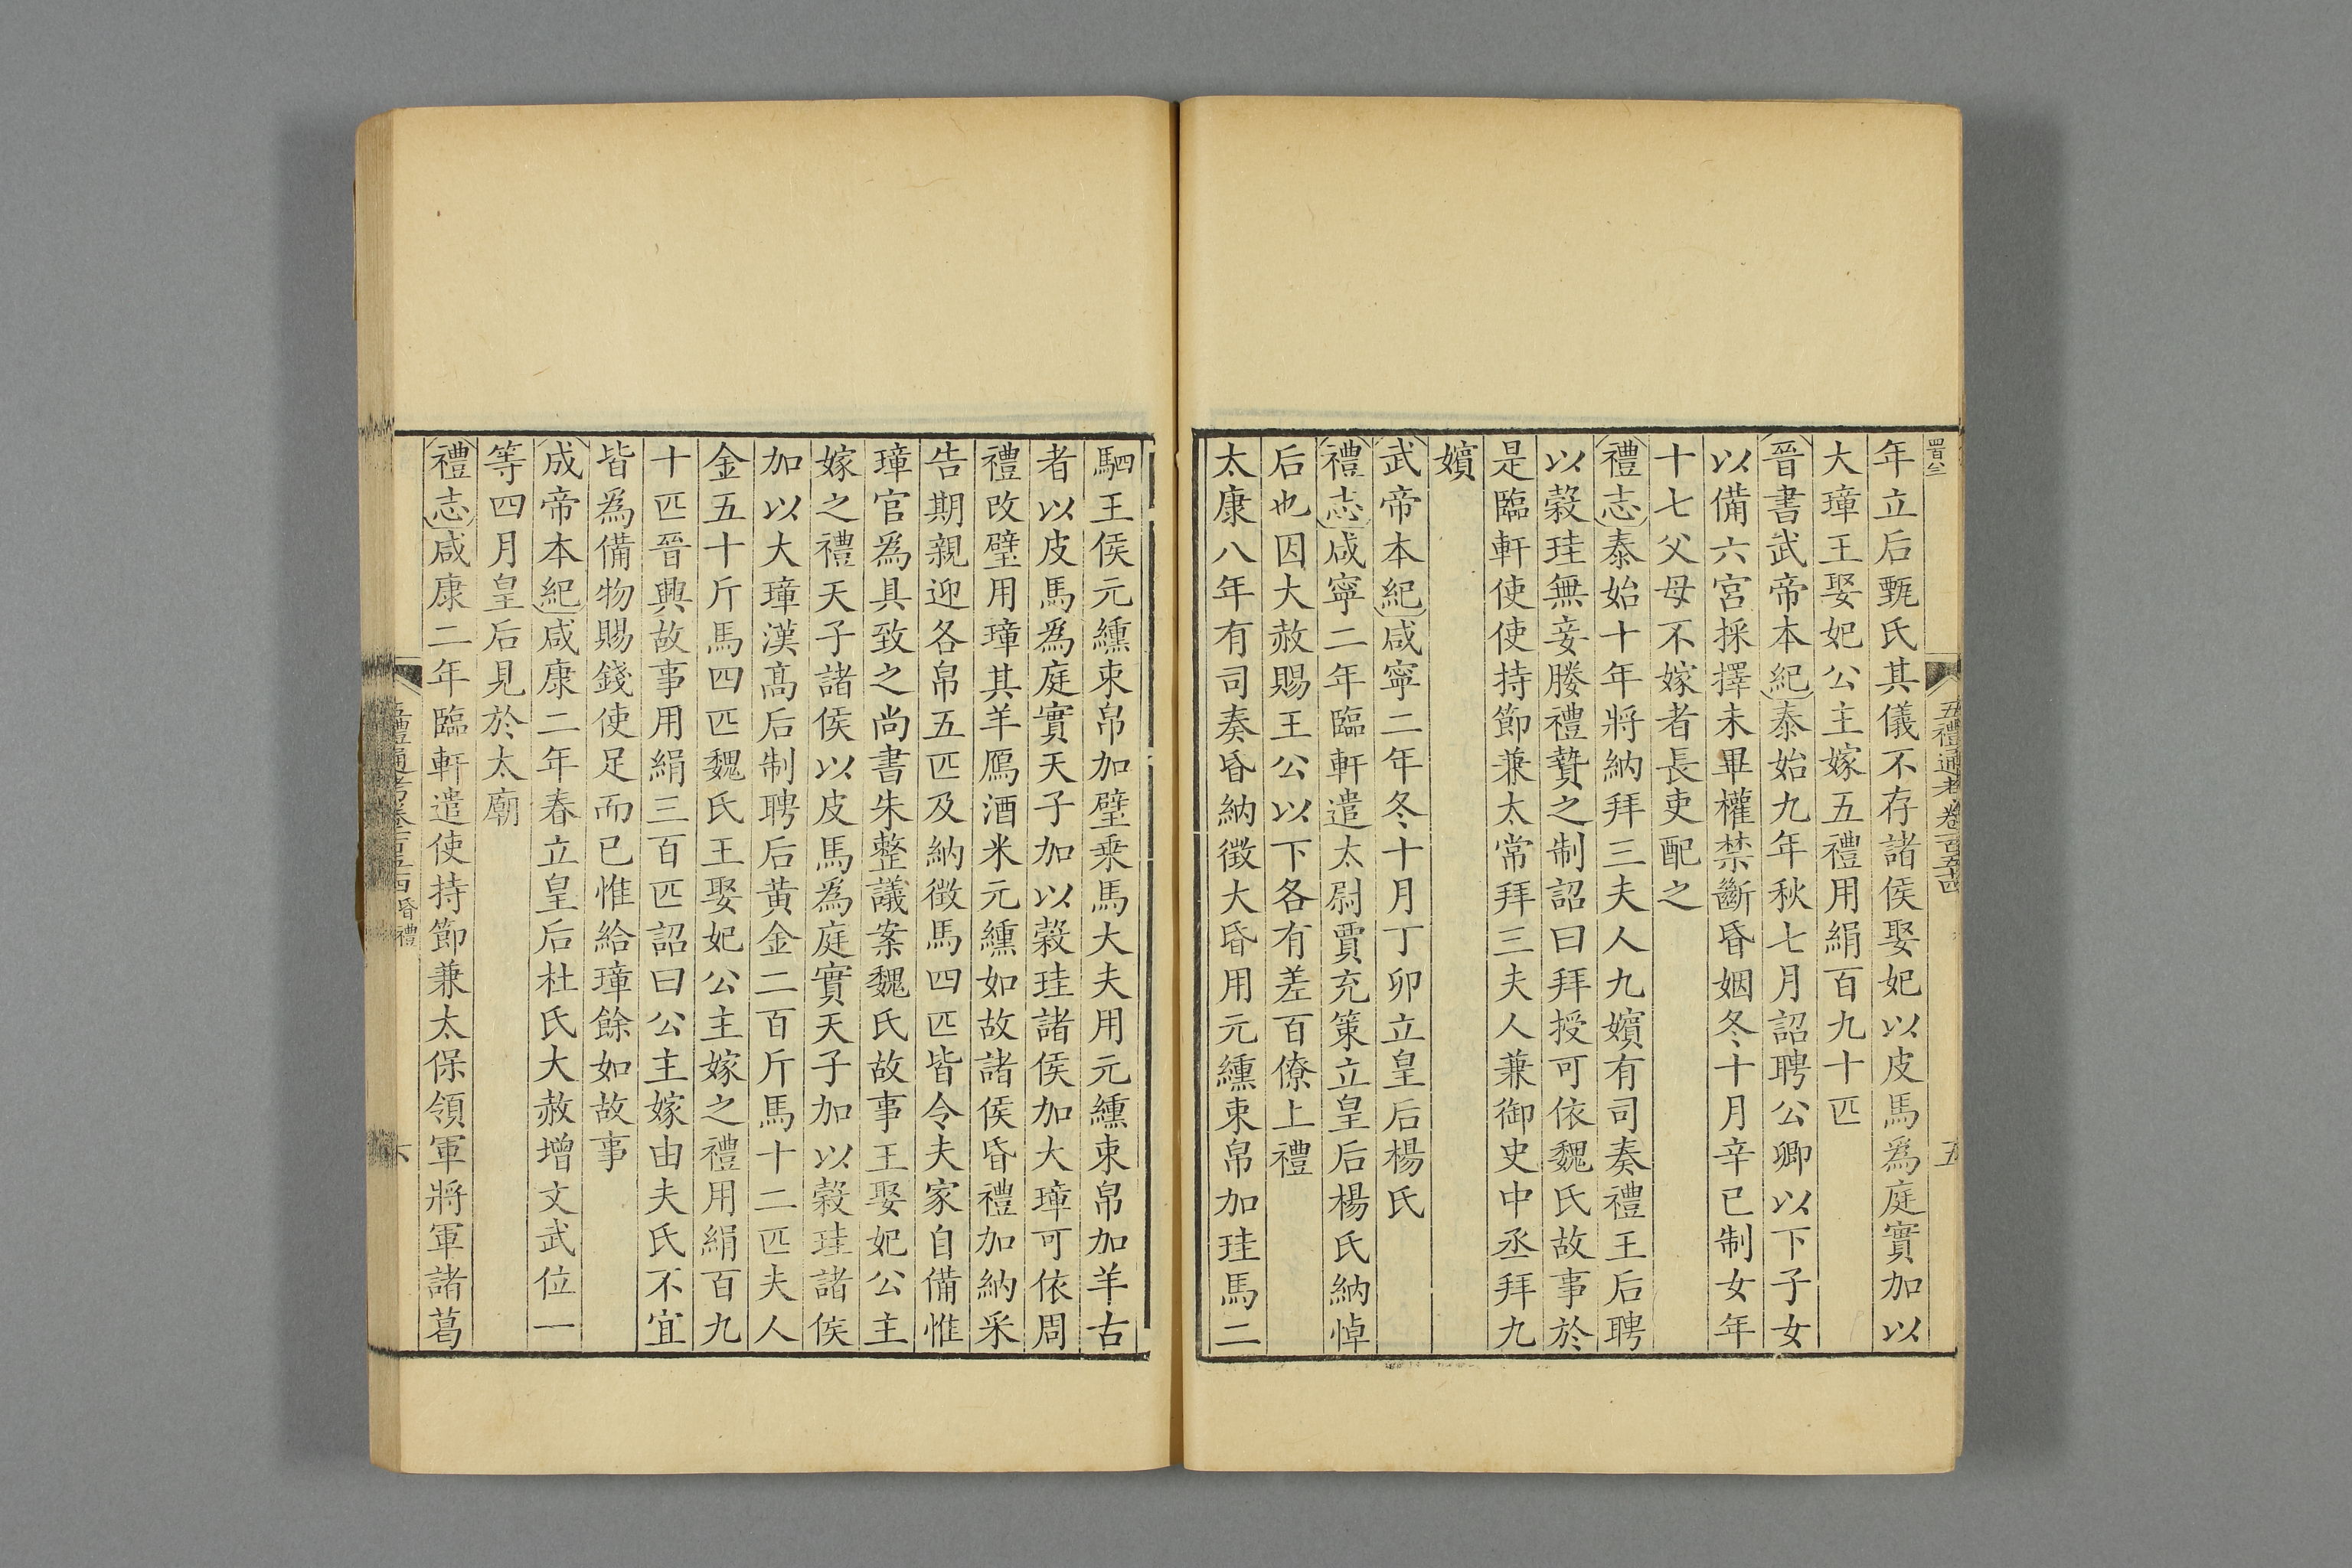 五禮通考卷一百五十四
五
年立后甄氏其儀不存諸侯娶妃以皮馬爲庭實加以
大璋王娶妃公主嫁五禮用絹百九十匹
晉書武帝本紀泰始九年秋七月詔聘公卿以下子女
以備六宮採擇未畢權禁斷昏姻冬十月辛巳制女年
十七父母不嫁者長吏配之
禮志泰始十年將納拜三夫人九嬪有司奏禮王后聘
以穀珪無妾媵禮贄之制詔曰拜授可依魏氏故事於
是臨軒使使持節兼太常拜三夫人兼御史中丞拜九
嬪
武帝本紀咸寧二年冬十月丁卯立皇后楊氏
禮志咸寧二年臨軒遣太尉賈充策立皇后楊氏納悼
后也因大赦賜王公以下各有差百僚上禮
太康八年有司奏昏納徵大昏用元纁束帛加珪馬二
駟王侯元纁束帛加璧乗馬大夫用元纁束帛加羊古
者以皮馬爲庭實天子加以穀珪諸侯加大璋可依周
禮改璧用璋其羊鴈酒米元纁如故諸侯昏禮加納采
告期親迎各帛五匹及納徵馬四匹皆令夫家自備惟
璋官爲具致之尚書朱整議案魏氏故事王娶妃公主
嫁之禮天子諸侯以皮馬爲庭實天子加以穀珪諸侯
加以大璋漢髙后制聘后黄金二百斤馬十二匹夫人
金五十斤馬四匹魏氏王娶妃公主嫁之禮用絹百九
十匹晉興故事用絹三百匹詔曰公主嫁由夫氏不宜
皆爲備物賜錢使足而已惟給璋餘如故事
成帝本紀咸康二年春立皇后杜氏大赦增文武位一
等四月皇后見於太廟
禮志咸康二年臨軒遣使持節兼太保領軍將軍諸葛
五禮通考卷一百五十四 昏禮
六